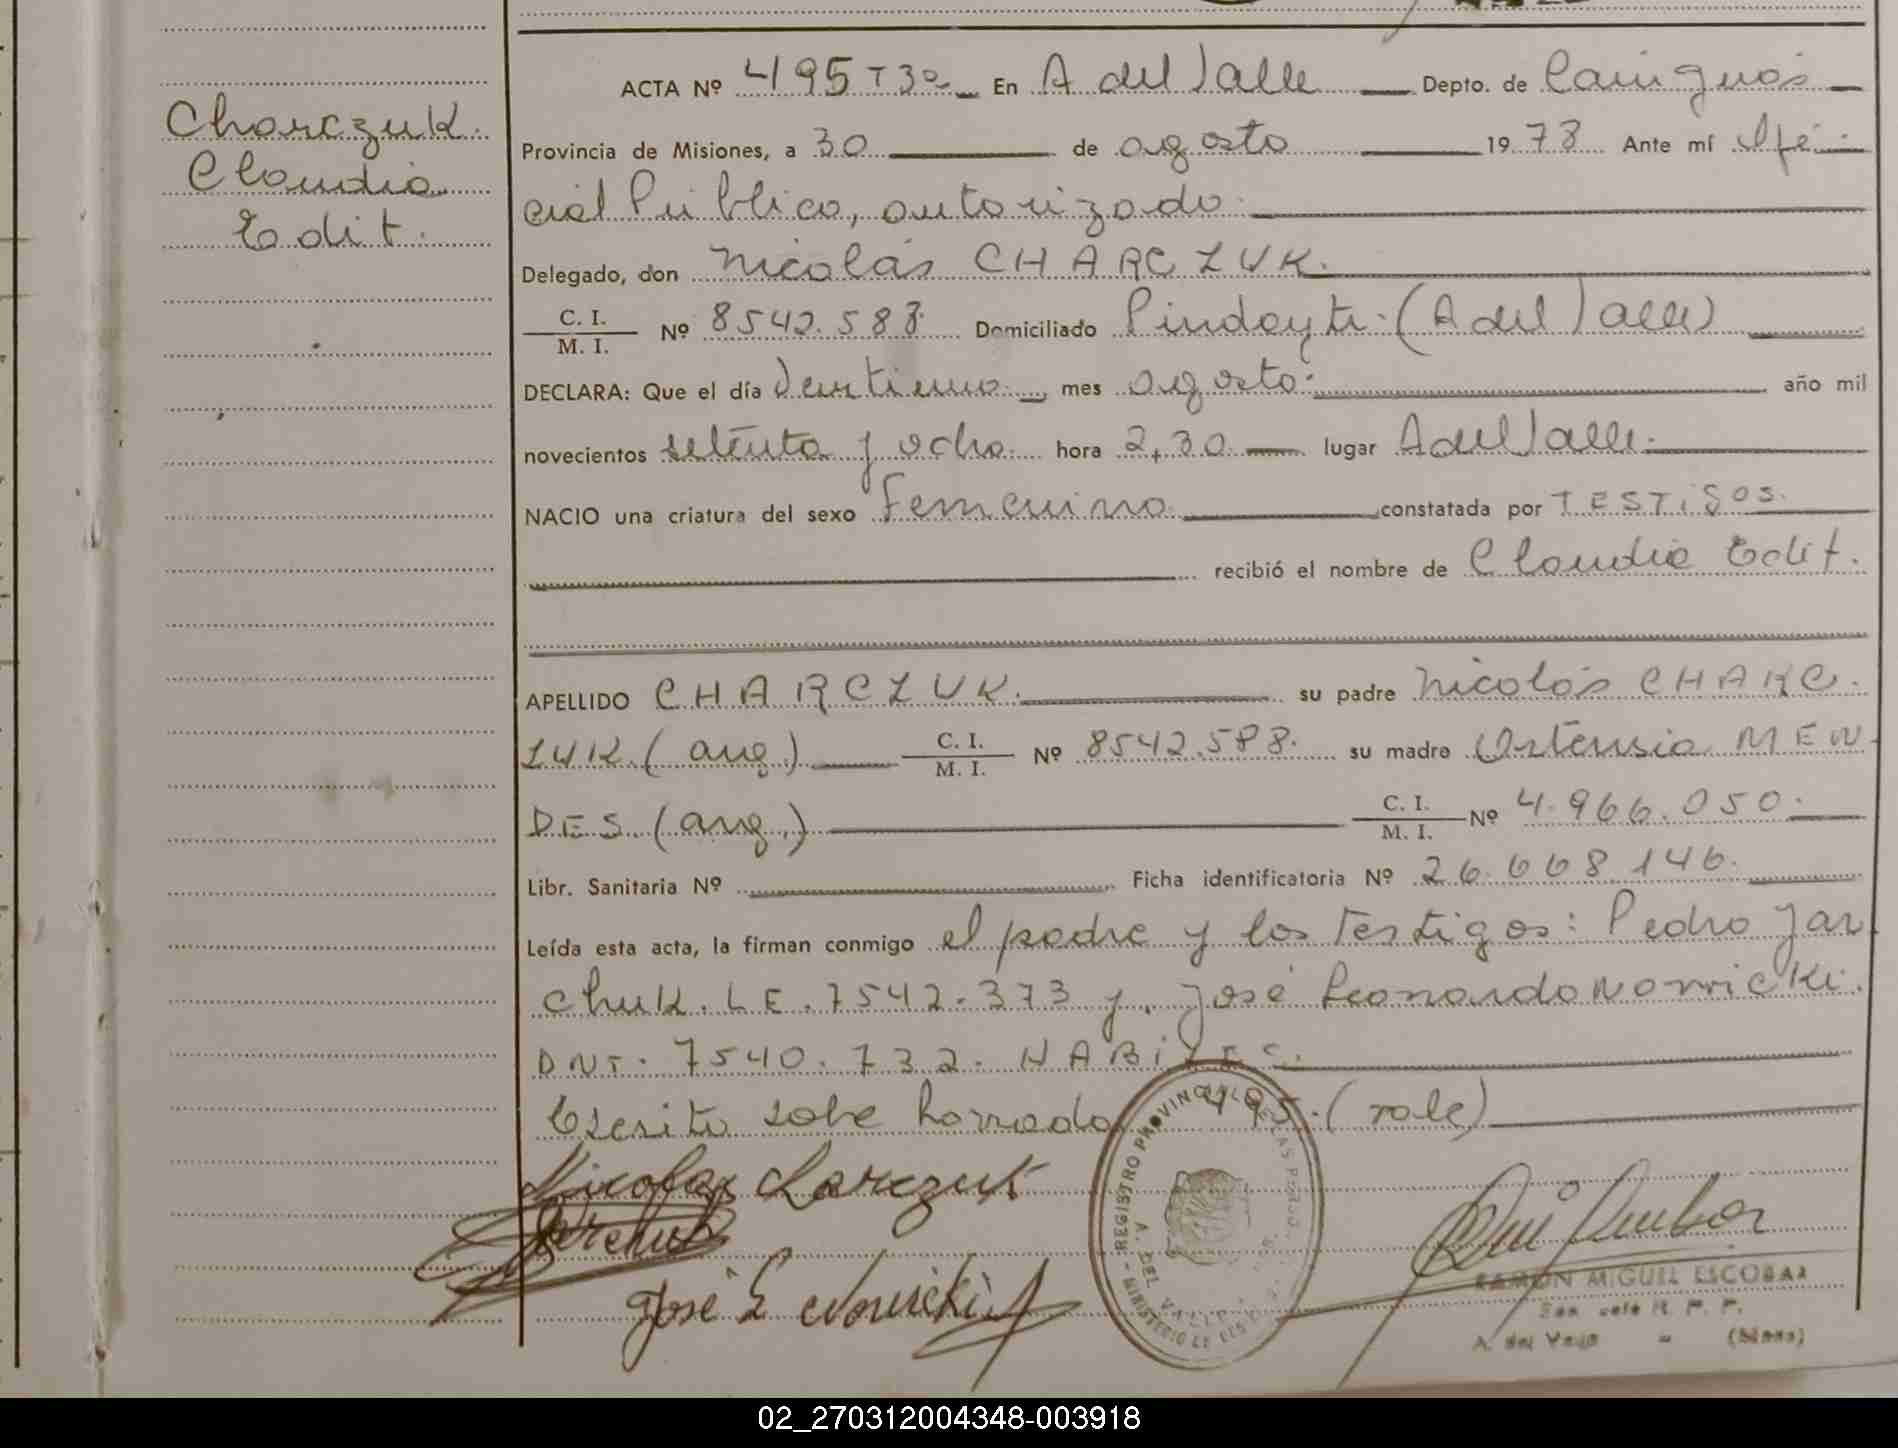 Charczuk.
Claudia
Edit.
ACTA Nº 495 T3º En A del Valle Depto. de Cainguás
Provincia de Misiones, a 30 de agosto 1978 Ante mí Ofi-
cial Público, autorizado.
Delegado, don Nicolás CHARCZUK.
C. I.
M. I. Nº 8542.588. Domiciliado Pindayti. (A del Valle)
DECLARA: Que el día Veintiuno mes agosto. año mil
novecientos setenta y ocho. hora 2,30 lugar A del Valle.
NACIO una criatura del sexo Femenino constatada por TESTiGOS.
recibió el nombre de Claudia Edit.
APELLIDO CHARCZUK. su padre Nicolás CHARC-
ZUK (arg.) C. I. M. I. Nº 8542.588. su madre Ortensia MEN-
DES (arg.) C. I. M. I. Nº 4.966.050.
Libr. Sanitaria Nº Ficha identificatoria Nº 26.668.146.
Leída esta acta, la firman conmigo el padre y los Testigos: Pedro Jar
chuk. L E. 7542.373 y José Leonardo Nowicki.
DNI. 7540.732. HABiLES.
Escrito sobre borrado 495. (vale)
Nicolas Charczuk
José L Nowicki
REGISTRO PROVINCIAL DE LAS PERSONAS
A. DEL VALLE
MINISTERIO DE
RAMON MIGUEL ESCOBAR
R. P. P.
A. del Valle - (Mnes)
02_270312004348-003918